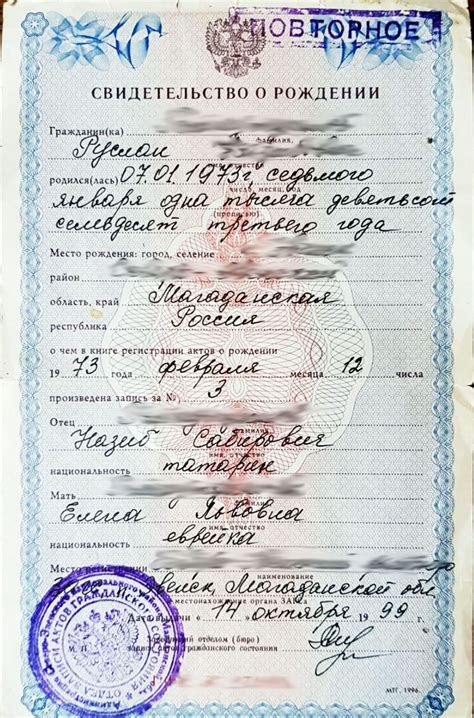 ПОВТОРНОЕ
СВИДЕТЕЛЬСТВО О РОЖДЕНИИ
Гражданин(ка)
фамилия,
Руслан
родился(лась) 07.01.1973г, седьмого
число, месяц, год
января одна тысяча девятьсот
(прописью)
семьдесят третьего года
Место рождения: город, селение
район
область, край Магаданская
республика Россия
о чем в книге регистрации актов о рождении
1973 года февраля месяца 12 числа
произведена запись за № 3
Отец
фамилия
Назиб Сабирович
имя, отчество
национальность татарин
Мать
Елена Львовна
имя, отчество
национальность еврейка
Место регистрации
наименование
Магаданской обл
местонахождение органа ЗАГСа
Дата выдачи « 14 » октября 1999 г.
Заведующий отделом (бюро)
записи актов гражданского состояния
М. П.
МТГ, 1996.